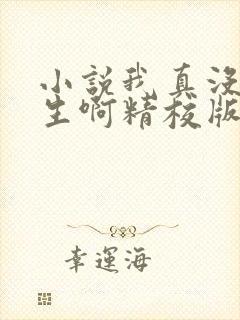 小說我真沒
生啊精校版
幸運海